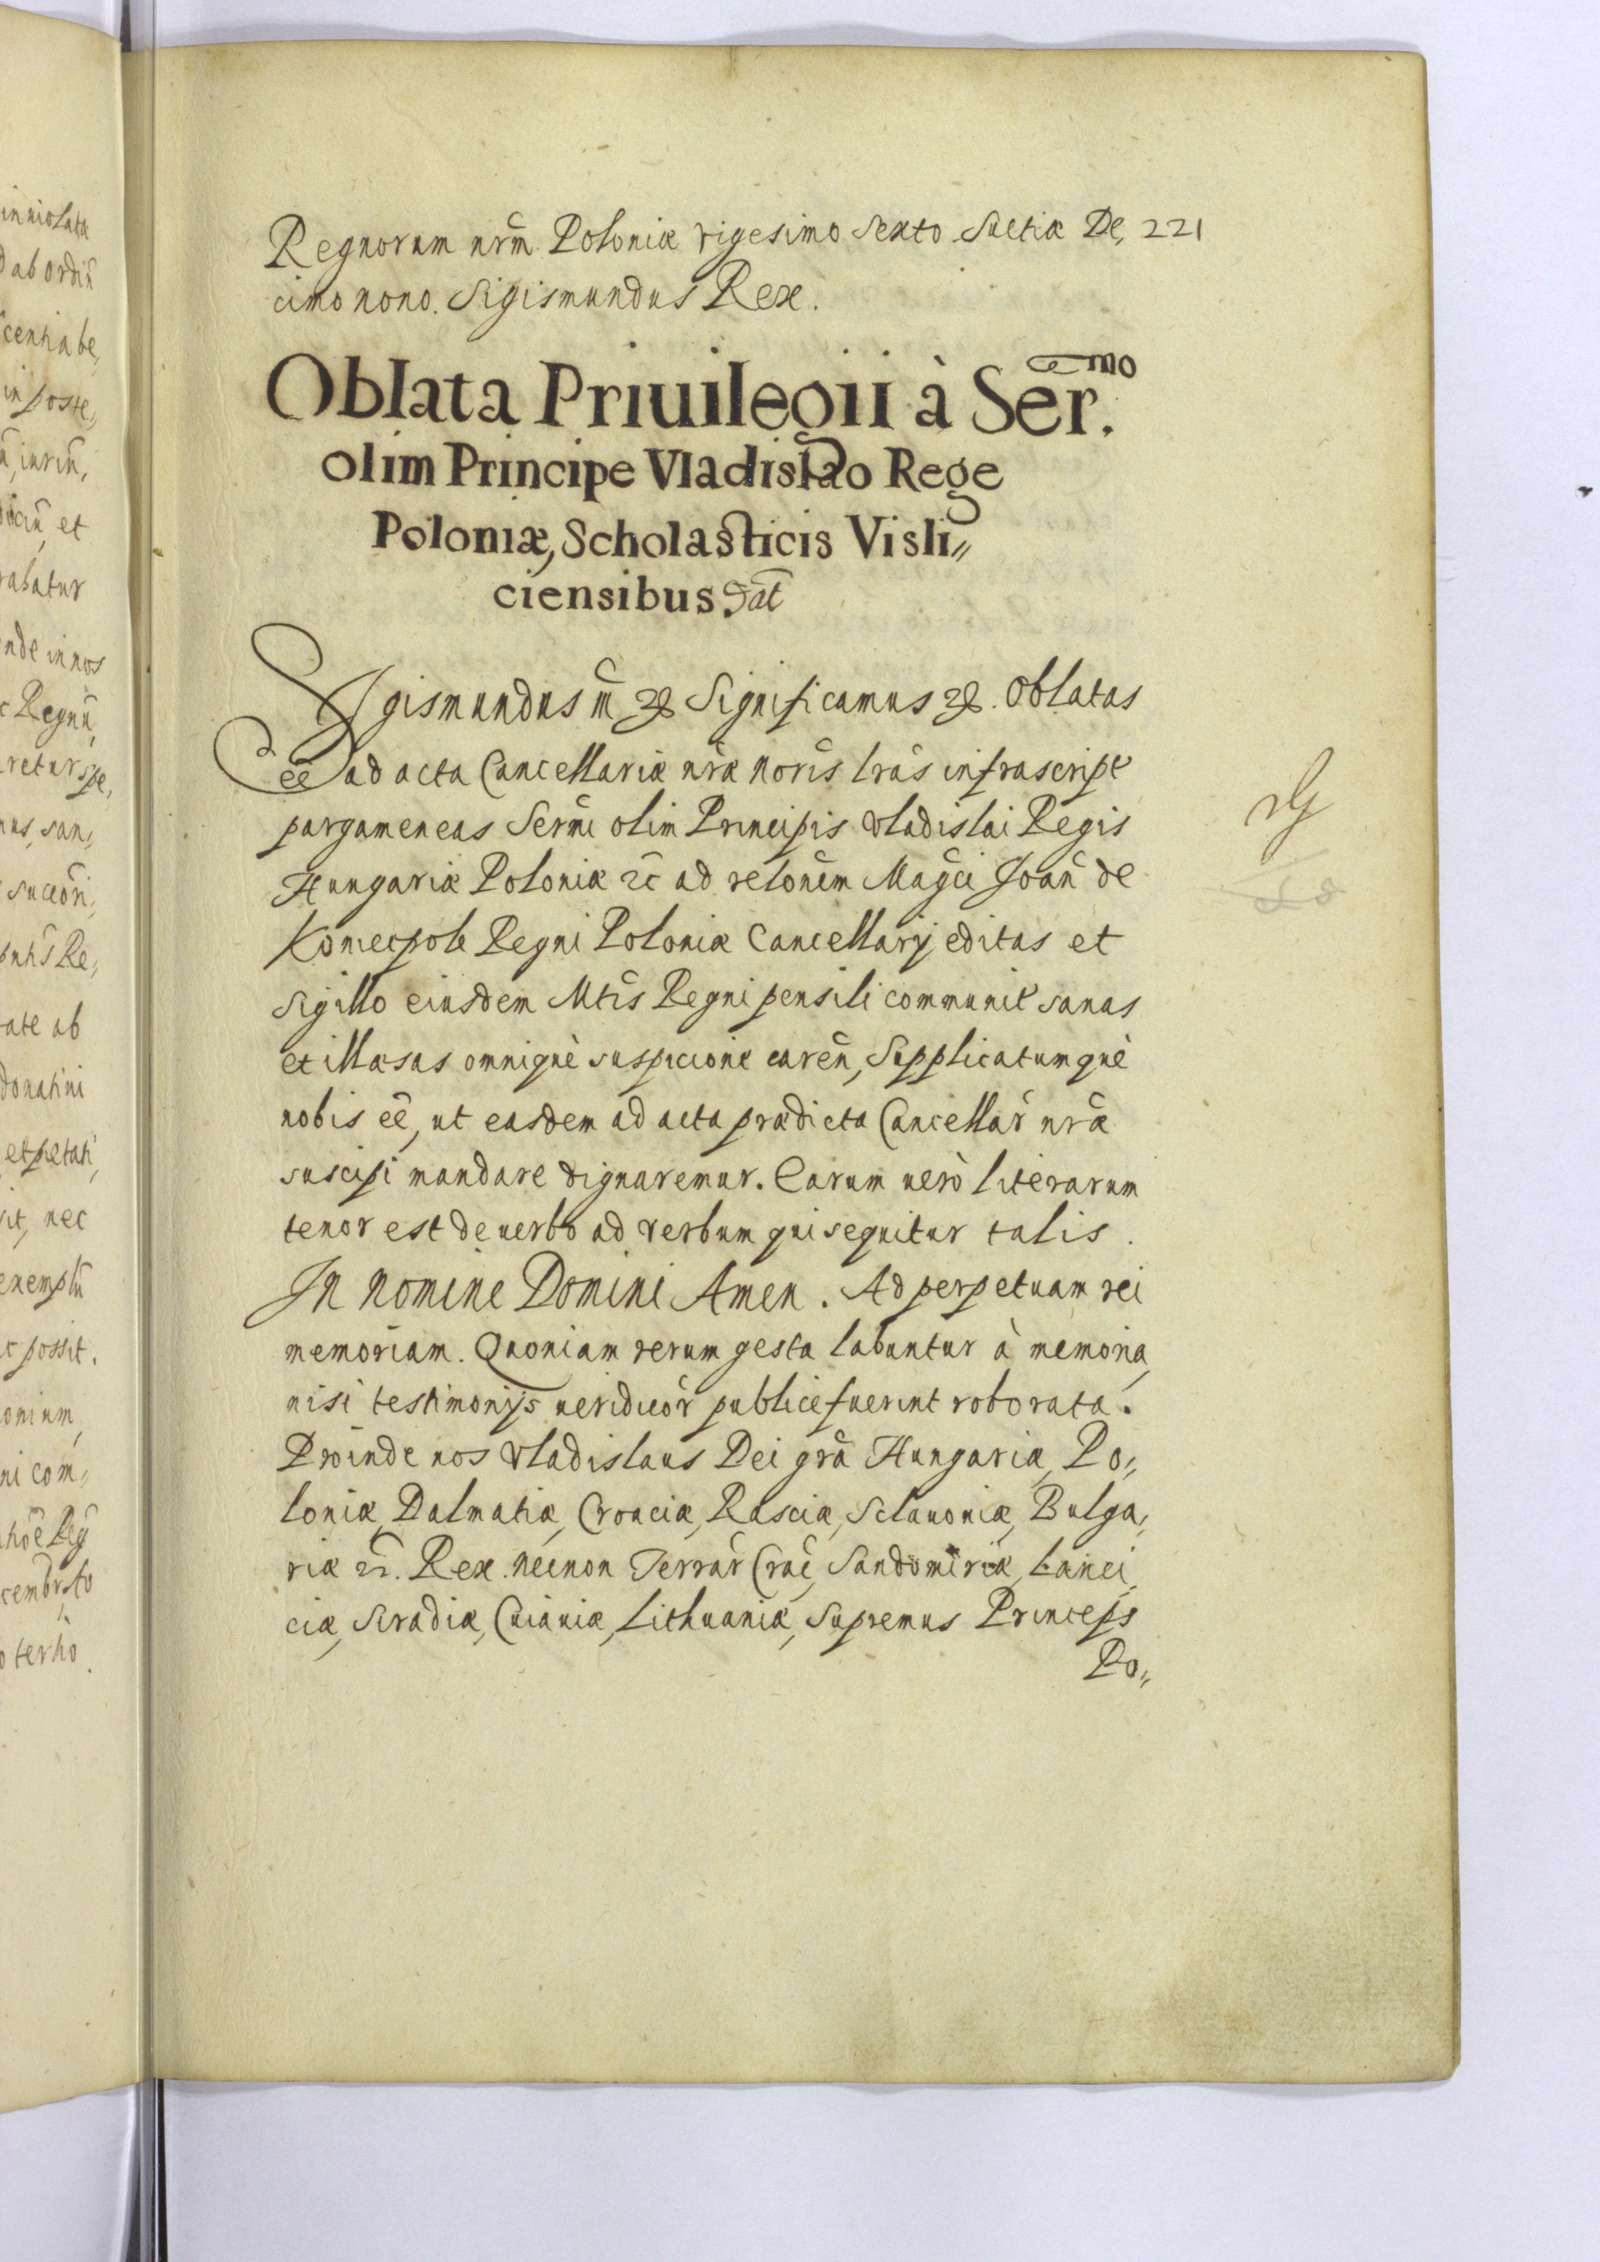 Regnorum nrm̃ Poloniæ vigesimo sexto Suetiæ De, 221
cimo nono. Sigismundus Rex.
Oblata Priuilegii à Ser.mo
olim Principe Vladislao Rege
Poloniæ, Scholasticis Visli,,
ciensibus. dat̃
Sigismundus III Significamus Oblatas
ee͂ ad acta Cancellariæ nr̃æ nor̃is lrãs infrascript
pargameneas Serm̃i olim Principis Vladislai Regis
Hungariæ Poloniæ &c ad relonẽm Magc̃i Joañ de
Koniecpole Regni Poloniæ Cancellarij editas et
sigillo eiusdem Mtĩs Regni pensili communit sanas
et illæsas omniquè suspicione carẽn, Supplicatumquè
nobis ee͂, ut easdem ad acta prædicta Cancellar̃ nr̃æ
suscipi mandare dignaremur. Earum uerò literarum
tenor est de uerbo ad verbum qui sequitur talis.
In nomine Domini Amen. Ad perpetuam rei
memoriam. Quoniam rerum gesta labuntur à memoria,
nisi testimonijs ueridicor̃ publice fuerint roborata.
Proinde nos Vladislaus Dei grã Hungariæ, Po,,
loniæ, Dalmatiæ, Croaciæ, Rasciæ, Sclauoniæ, Bulga,,
riæ &c. Rex. necnon Terrar̃ Crac̃, Sandomiriæ, Lanci,
ciæ, Siradiæ, Cuiauiæ, Lithuaniæ, Supremus Princeps
Po,,